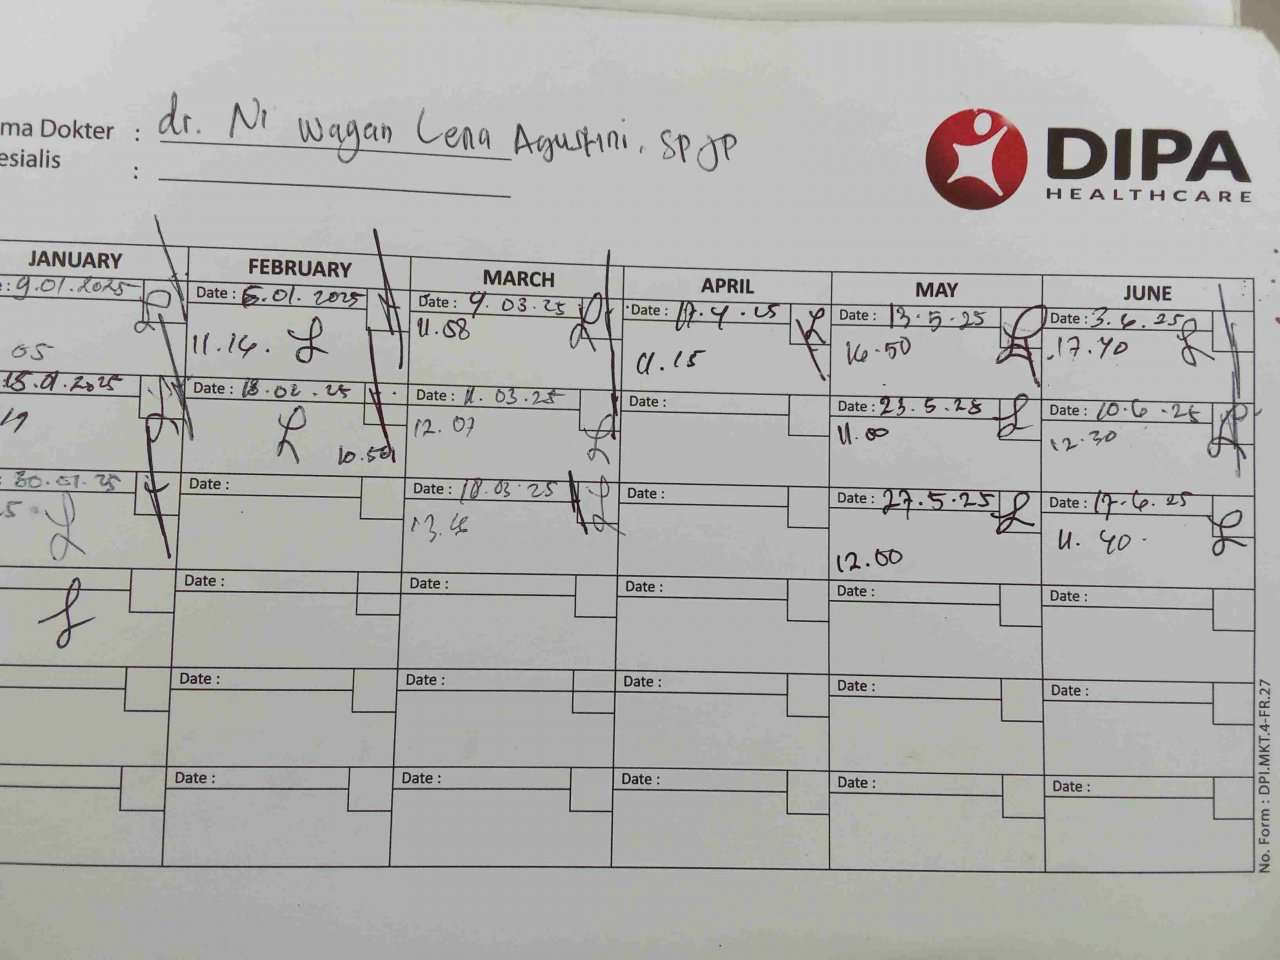 ma Dokter : dr. Ni Wayan Lena Agustini, SPJP
esialis :
DIPA
HEALTHCARE
JANUARY FEBRUARY MARCH APRIL MAY JUNE
: 9.01.2025 Date : 6.01.2025 Date : 9.03.25 Date : 17.4.25 Date : 13.5.25 Date : 3.6.25
05 11.14. 11.58 11.15 16.50 17.40
15.01.2025 Date : 18.02.25 Date : 11.03.25 Date : Date : 23.5.25 Date : 10.6.25
10.50 12.07 11.00 12.30
: 30.01.25 Date : Date : 18.03.25 Date : Date : 27.5.25 Date : 17.6.25
12.00 11.40
Date : Date : Date : Date : Date :
Date : Date : Date : Date : Date :
Date : Date : Date : Date : Date :
No. Form : DPI.MKT.4-FR.27